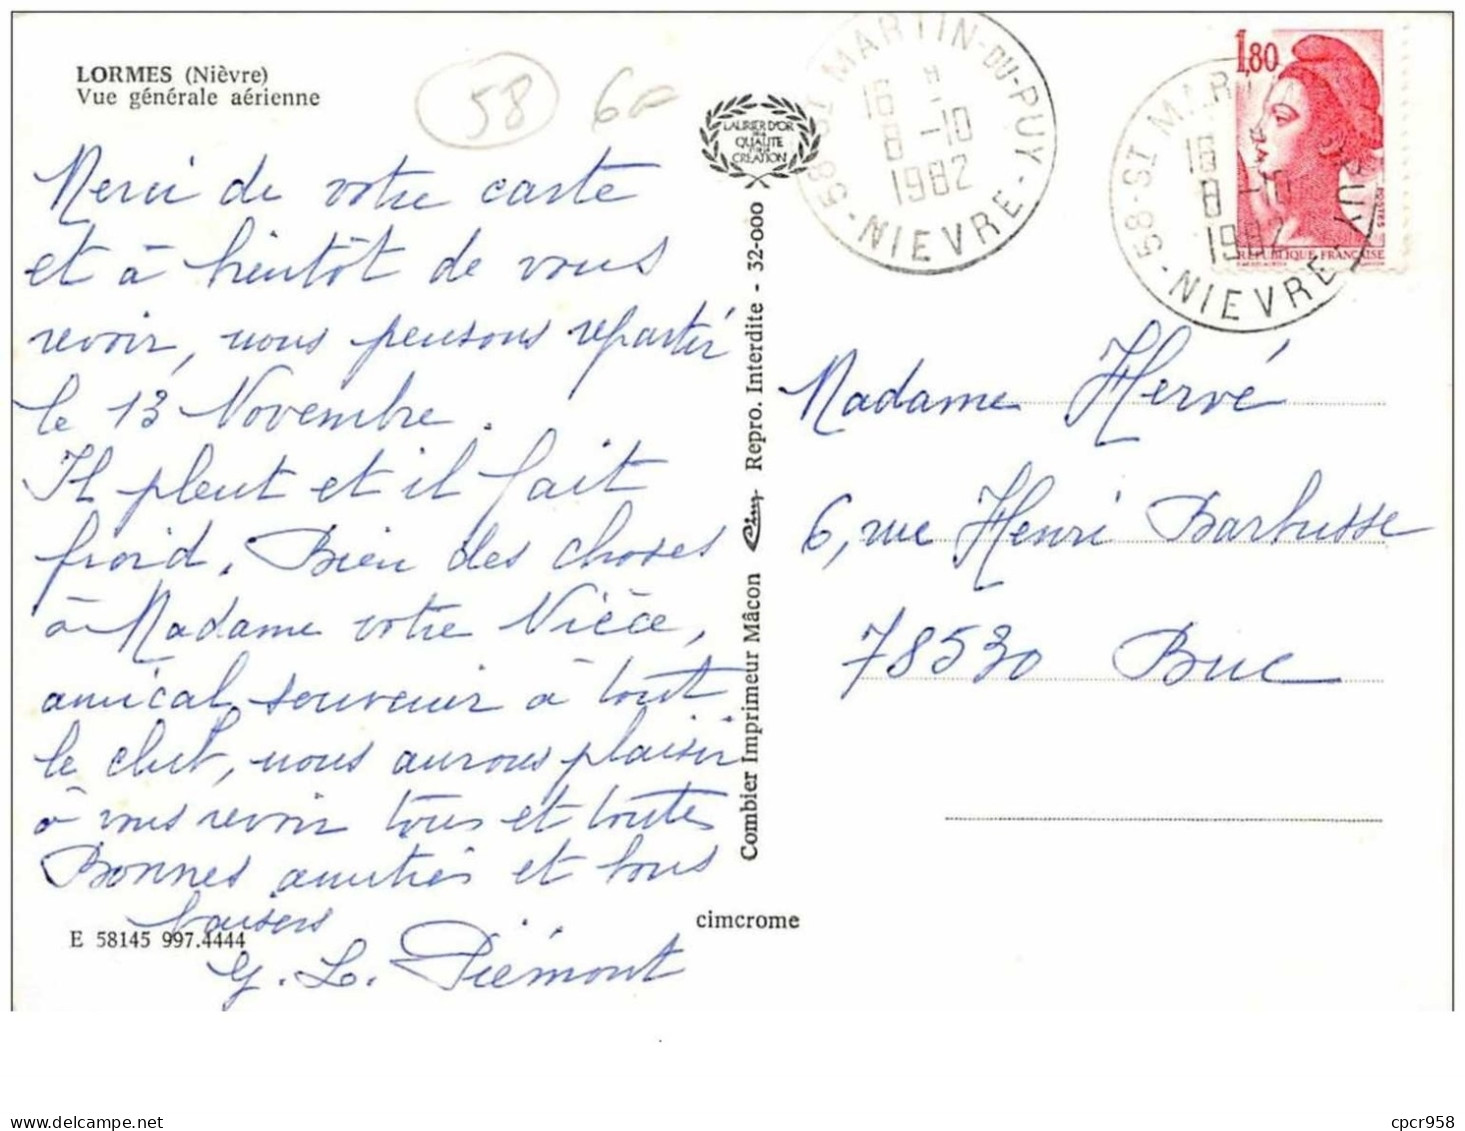 LORMES (Nièvre)
Vue générale aérienne
58
60
LAURIER D'OR
DE LA
QUALITE
CREATION
58 - ST MARTIN-DU-PUY
16 H
8 -10
1982
- NIEVRE -
58 - ST MARTIN PUY
16 H
8 -10
1982
- NIEVRE
1,80
POSTES
REPUBLIQUE FRANÇAISE
Merci de votre carte
et à bientôt de vous
revoir, nous pensons repartir
le 13 Novembre.
Il pleut et il fait
froid. Bien des choses
à Madame votre Nièce,
amical souvenir à tout
le club, nous aurons plaisir
à vous revoir tous et toutes
Bonnes amitiés et bons
baisers
G. L. Piémont
E 58145 997.4444
Combier Imprimeur Mâcon Cim Repro. Interdite - 32-000
cimcrome
Madame Hervé
6, rue Henri Barbusse
78530 Buc
cpcr958